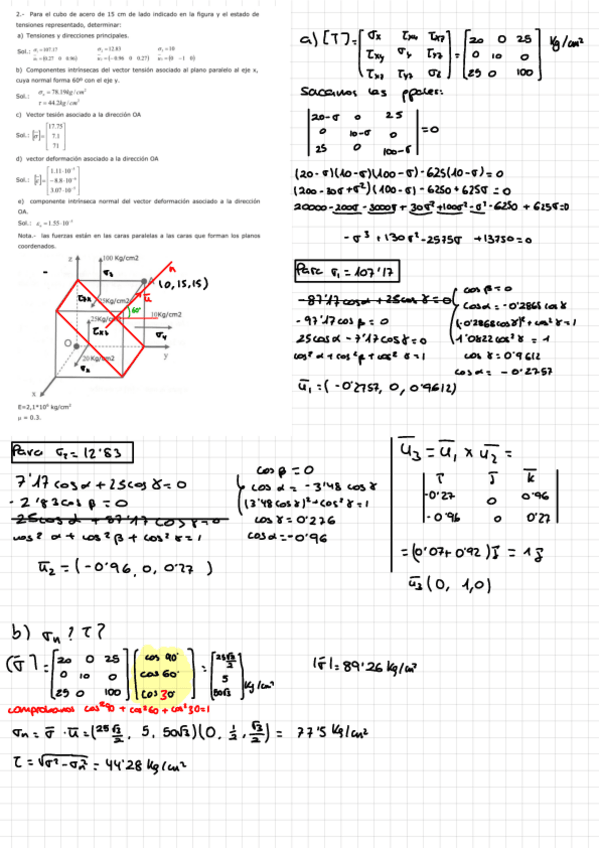 2.- Para el cubo de acero de 15 cm de lado indicado en la figura y el estado de
tensiones representado, determinar:
a) Tensiones y direcciones principales.
Sol.: σ₁=107.17 σ₂=12.83 σ₃=10
u₁=(0.27 0 0.96) u₂=(-0.96 0 0.27) u₃=(0 -1 0)
b) Componentes intrínsecas del vector tensión asociado al plano paralelo al eje x,
cuya normal forma 60º con el eje y.
Sol.: σₙ = 78.19kg/cm²
τ = 44.2kg/cm²
c) Vector tesión asociado a la dirección OA
Sol.: [σ]= [17.75 7.1 71]
d) vector deformación asociado a la dirección OA
Sol.: [ε]= [1.11·10⁻⁵ -8.8·10⁻⁶ 3.07·10⁻⁵]
e) componente intrínseca normal del vector deformación asociado a la dirección
OA.
Sol.: εₙ=1.55·10⁻⁵
Nota.- las fuerzas están en las caras paralelas a las caras que forman los planos
coordenados.
z 100 Kg/cm2
σz
n
(0,15,15)
τzx 25Kg/cm2 ū
60°
25Kg/cm2 10Kg/cm2
τxz σy
O y
20 Kg/cm2
σx
x
E=2,1*10⁶ kg/cm²
μ = 0.3.
a) [T]= [σx τxy τxz; τxy σy τyz; τxz τyz σz] = [20 0 25; 0 10 0; 25 0 100] kg/cm²
Sacamos las ppales:
|20-σ 0 25; 0 10-σ 0; 25 0 100-σ| = 0
(20-σ)(10-σ)(100-σ)-625(10-σ)=0
(200-30σ+σ²)(100-σ)-6250+625σ=0
20000-200σ-3000σ+30σ²+100σ²-σ³-6250+625σ=0
-σ³+130σ²-2575σ+13750=0
Para σ₁=107'17
-87'17cosα+25cosγ=0
-97'17cosβ=0
25cosα-7'17cosγ=0
cos²α+cos²β+cos²γ=1
cosβ=0
cosα=-0'2868cosγ
(-0'2868cosγ)²+cos²γ=1
1'0822cos²γ=1
cosγ=0'9612
cosα=-0'2757
ū₁=(-0'2757, 0, 0'9612)
Para σ₂=12'83
7'17cosα+25cosγ=0
-2'83cosβ=0
25cosα+87'17cosγ=0
cos²α+cos²β+cos²γ=1
cosβ=0
cosα=-3'48cosγ
(3'48cosγ)²+cos²γ=1
cosγ=0'276
cosα=-0'96
ū₂=(-0'96, 0, 0'27)
ū₃=ū₁×ū₂=
ī j̄ k̄
-0'27 0 0'96
-0'96 0 0'27
=(0'07+0'92)j̄=1j̄
ū₃(0, 1,0)
b) σₙ? τ?
(σ̄)=[20 0 25; 0 10 0; 25 0 100][cos 90°; cos 60°; cos 30°]=[25√3/2; 5; 50√3] kg/cm²
|σ̄|=89'26 kg/cm²
comprobamos cos²90+cos²60+cos²30=1
σₙ=σ̄·ū=(25√3/2, 5, 50√3)(0, 1/2, √3/2)= 77'5 kg/cm²
τ=√σ²-σₙ²=44'28 kg/cm²